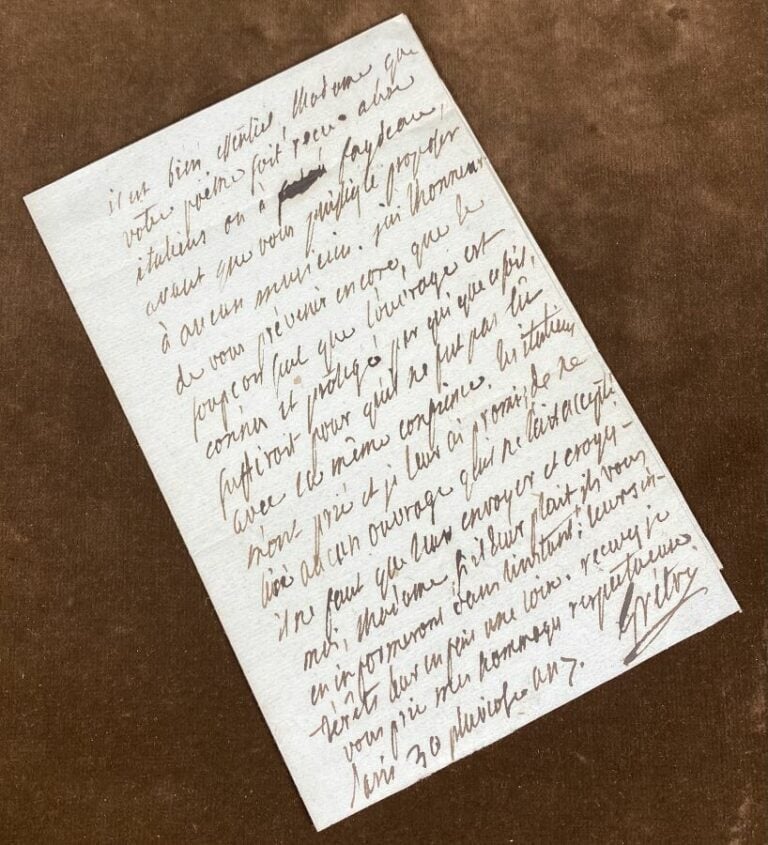 il est bien essentiel Madame que
votre poëme soit recu aux
italiens ou à faydeau,
avant que vous puissiés proposer
à aucun musicien. j'ai l'honneur
de vous prévenir encore, que le
soupcon seul que l'ouvrage est
connu et protegé par qui que ce soit,
suffiroit pour qu'il ne fut pas lû
avec la même confiance. les italiens
m'ont prié et je leur ai promis, de ne
lire aucun ouvrage qu'ils ne l'aient accepté.
il ne faut que leur envoyer et croyés-
moi, Madame, s'il leur plait ils vous
en informeront dans l'instant: leurs in-
-térêts leur en fait une loix. recevez je
vous prie mes hommages respectueux
Grétry
Paris 30 pluviose an 7.